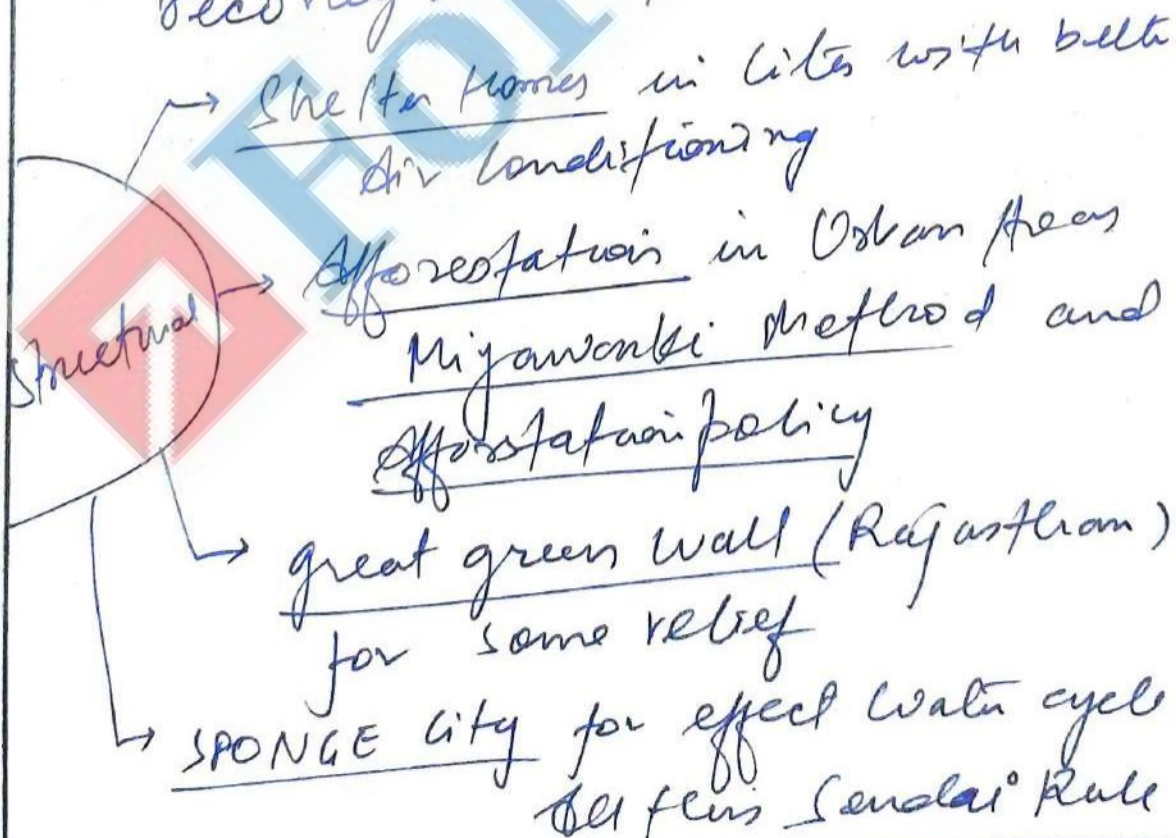 Shelter Homes in Cities with bette
Air Conditioning
Structural
Afforestation in Urban Areas
Miyawanki Method and
Afforstation policy
great green wall (Rajasthan)
for some relief
SPONGE City for effect Water cycle
All this Sendai Rule